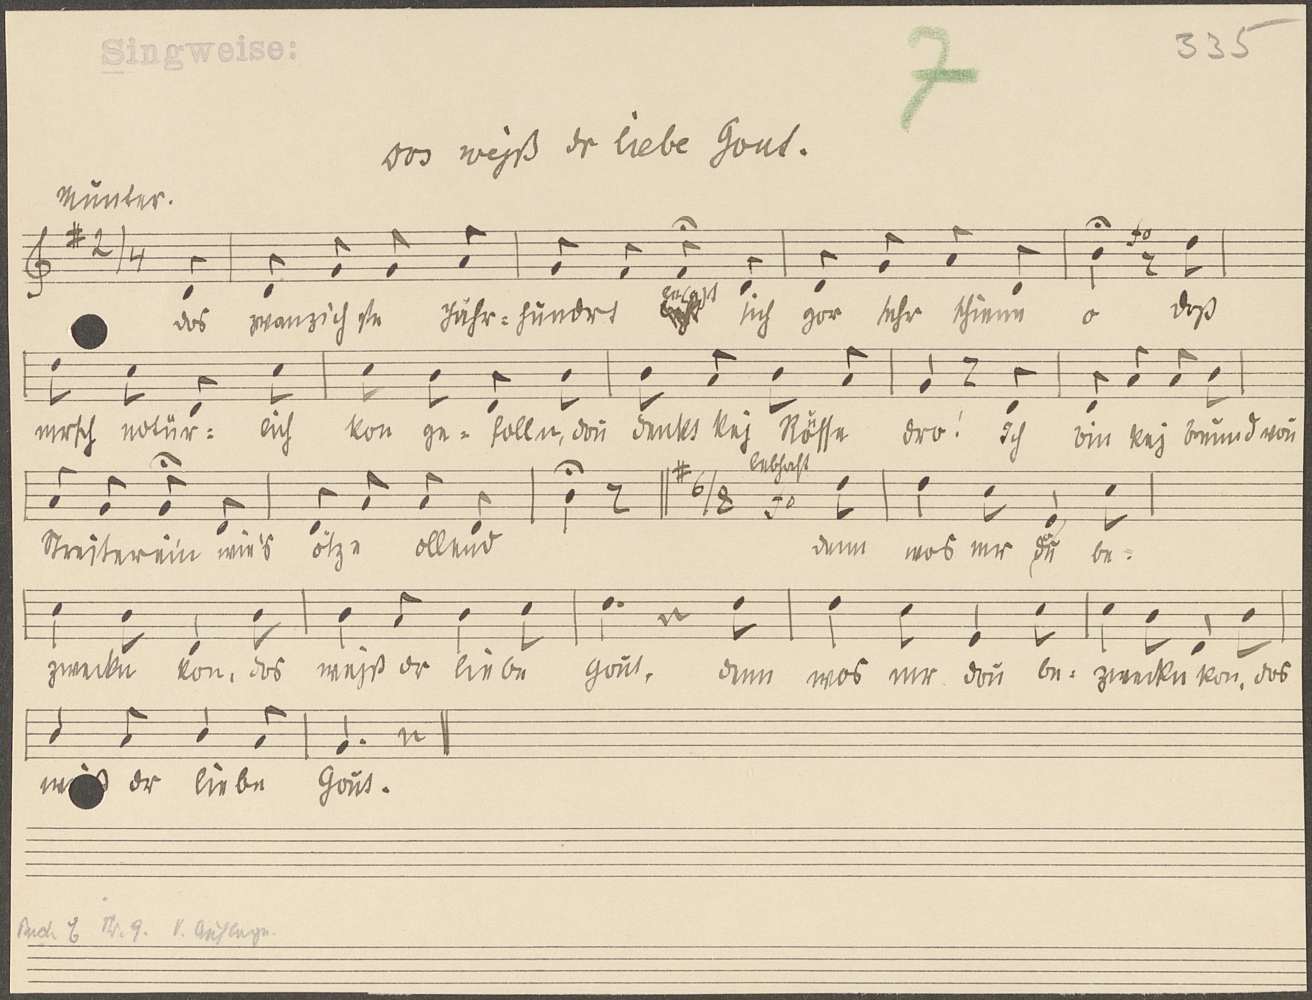 Singweise:
7
335
Dos wejß dr liebe Gout.
Munter.
2/4
dos zwanzichste Jahr=hundrt sich gor sehr schienn o daß
mrsch notür= lich kon ge= folln, dou denkt kej Rösse dro! Ich bin kej Freund vou
Streiterein wie's ötze ollend
6/8 lebhaft
denn wos mr dou be=
zweckn kon, dos wejß dr liebe Gout, denn wos mr dou be= zweckn kon, dos
wejß dr liebe Gout.
Nr. 9. V. Auflage.